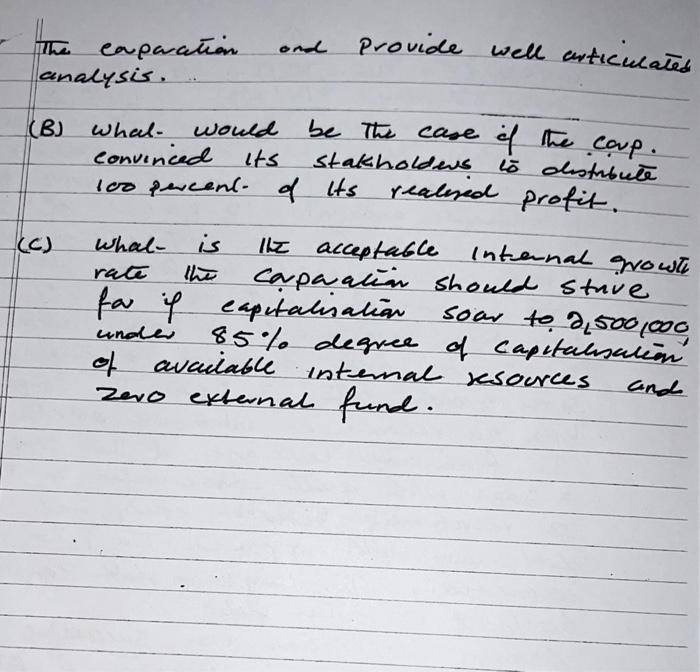 The caparation and provide well articulated
analysis.
(B) what would be the case if the corp.
convinced its stakholders to distribute
100 percent of its realised profit.
(C) what is the acceptable internal growth
rate the caparation should strive
for if capitalisation soar to 2,500,000
under 85% degree of capitalisation
of available internal resources and
zero external fund.